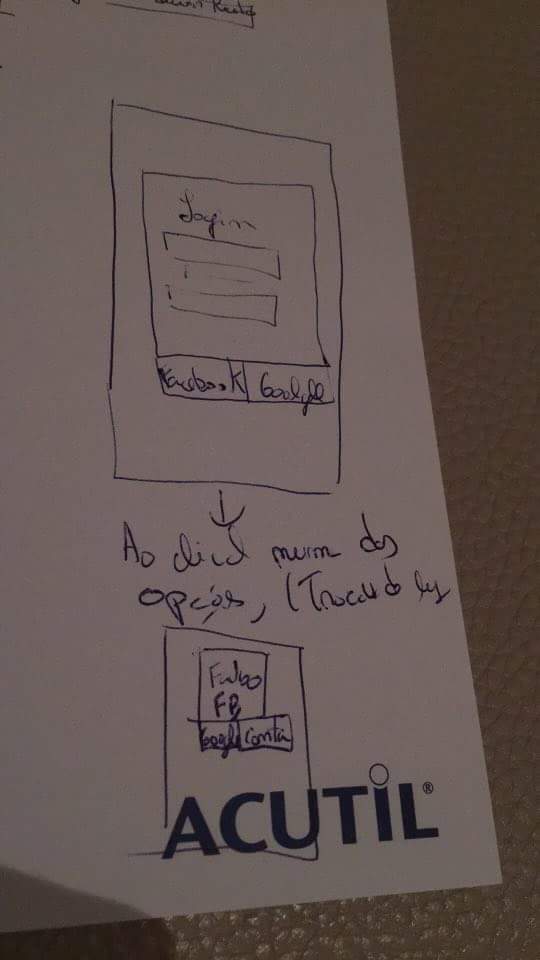 Login
Facebook Google
Ao clicl num das
opções, (Trocad
FB
Google Conta
ACUTIL®